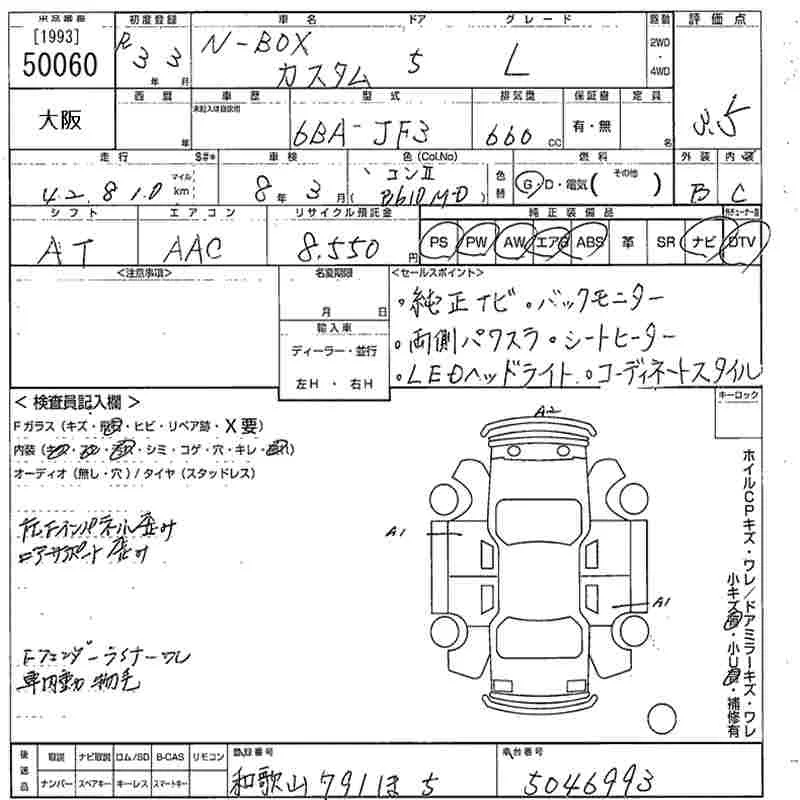 出品番号
[1993]
50060
初度登録
R 3 年 3 月
車名 ドア グレード
N-BOX
カスタム 5 L
駆動
2WD
・
4WD
評価点
3.5
大阪
西暦
年
車歴
未記入は自家用
型式
6BA-JF3
排気量
660 cc
保証書
有・無
定員
名
走行 S#*
42,810 マイル km
車検
8年 3月
色(Col.No)
コンII
B610M-D
色替
燃料
G・D・電気( その他 )
外装 内装
B C
シフト
AT
エアコン
AAC
リサイクル預託金
8.550 円
純正装備品
PS PW AW エアB ABS 革 SR ナビ DTV
<注意事項>
名変期限
月 日
輸入車
ディーラー・並行
左H ・ 右H
<セールスポイント>
・純正ナビ・バックモニター
・両側パワスラ・シートヒーター
・LEDヘッドライト・コーディネートスタイル
キーロック
< 検査員記入欄 >
Fガラス(キズ・飛石・ヒビ・リペア跡・X要)
内装(キズ・スレ・汚れ・シミ・コゲ・穴・キレ・
オーディオ(無し・穴)/タイヤ(スタッドレス)
A2
A1
A1
コアサポート
Fフェンダーライナーワレ
車内動物毛
ホイルCPキズ・ワレ/ドアミラーキズ・ワレ
小キズ有・小U有・補修有
後送品
取説 ナビ取説 ロム/SD B-CAS リモコン
ナンバー スペアキー キーレス スマートキー
登録番号
和歌山 791 ほ 5
車台番号
5046993